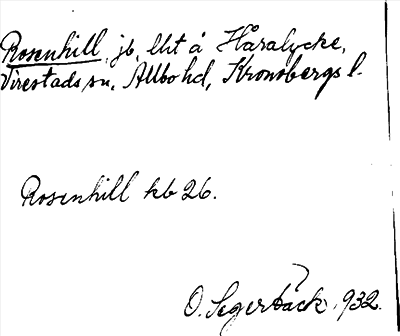 Rosenhill, jb, lht å Håralycke,
Virestads sn, Allbo hd, Kronobergs l.
Rosenhill kb 26.
O. Segerbäck. 932.